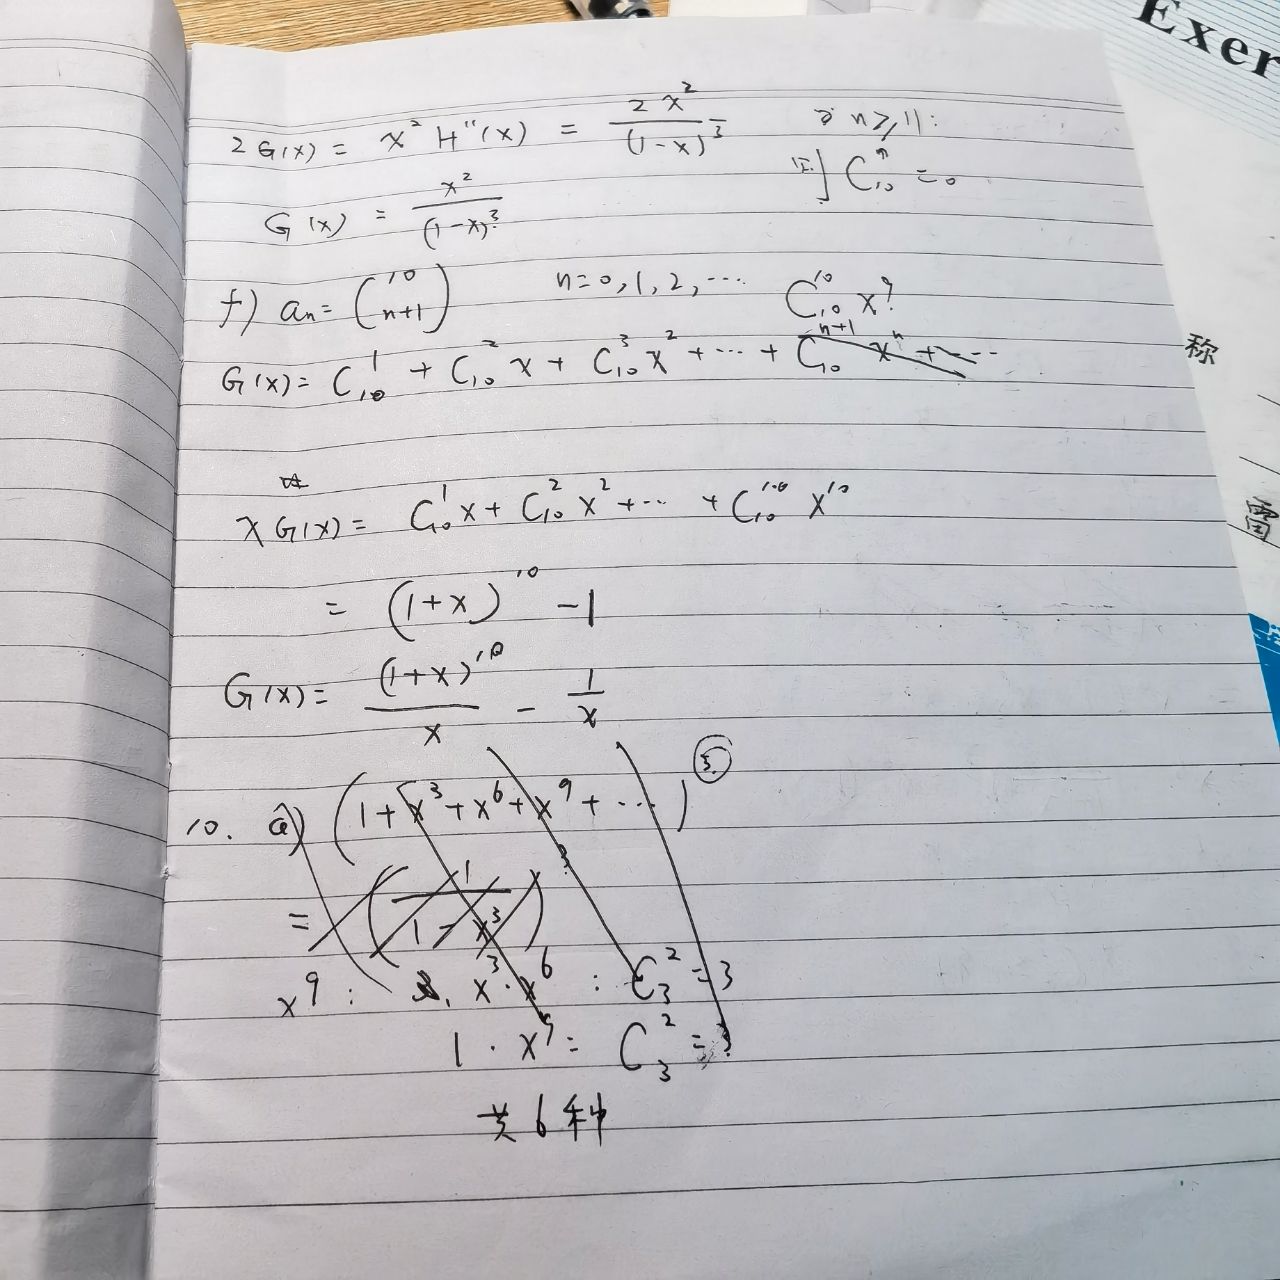 Exer
2G(x) = x² H''(x) = 2x² / (1-x)³
n ≥ 11:
则 C₁₀ⁿ = 0
G(x) = x² / (1-x)³
f) aₙ = (10 / n+1) n=0,1,2,...
C₁₀¹⁰ x⁹
G(x) = C₁₀¹ + C₁₀² x + C₁₀³ x² + ... + C₁₀ⁿ⁺¹ xⁿ + ...
xG(x) = C₁₀¹ x + C₁₀² x² + ... + C₁₀¹⁰ x¹⁰
= (1+x)¹⁰ - 1
G(x) = (1+x)¹⁰ / x - 1/x
10. a) (1 + x³ + x⁶ + x⁹ + ...)³
= (1 / 1-x³)³
x⁹ : x³·x⁶ : C₃² = 3
1 · x⁹ = C₃² = 3
共6种
称
雷